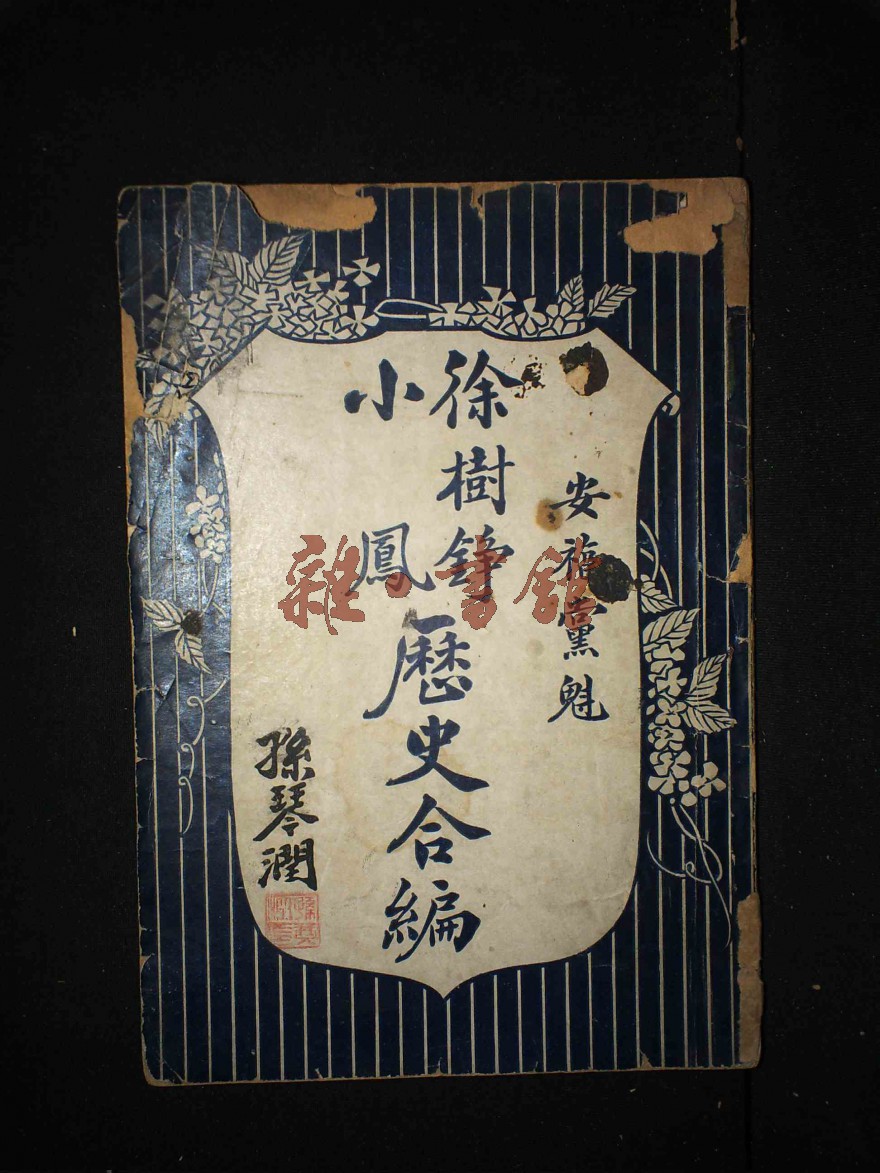 安福黨魁
徐樹錚
小鳳
歷史合編
孫琴潤
雜書館